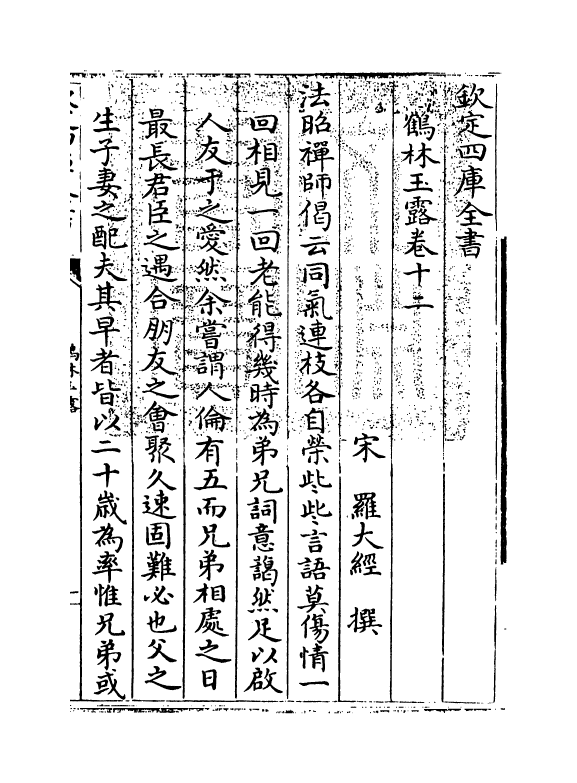 欽定四庫全書
鶴林玉露卷十二
宋 羅大經 撰
法昭禪師偈云同氣連枝各自榮些些言語莫傷情一
回相見一回老能得幾時為弟兄詞意藹然足以啟
人友于之愛然余嘗謂人倫有五而兄弟相處之日
最長君臣之遇合朋友之會聚久速固難必也父之
生子妻之配夫其早者皆以二十歳為率惟兄弟或
鶴林玉露